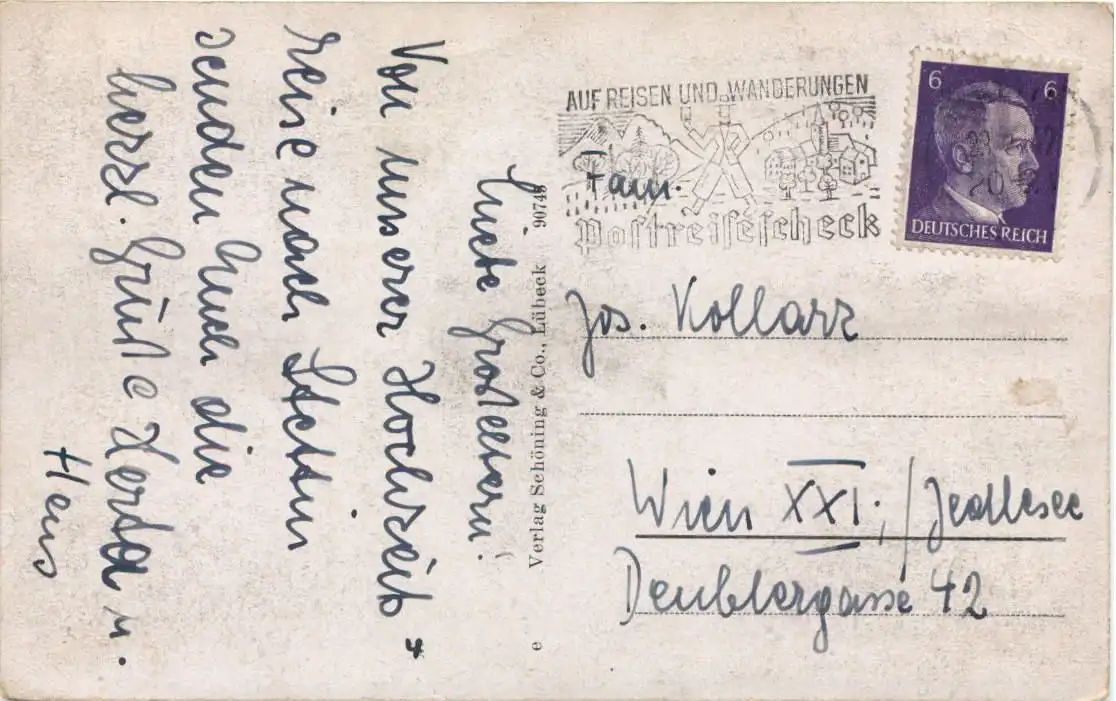 Liebe Großeltern!
Von unserer Hochzeits
reise nach Stettin
senden Euch die
herzl. Grüße Herta u.
Hans
Verlag Schöning & Co., Lübeck 90745
e
AUF REISEN UND WANDERUNGEN
Postreisescheck
6 6
DEUTSCHES REICH
Fam.
Jos. Kollarz
Wien XXI./Jedlesee
Deublergasse 42